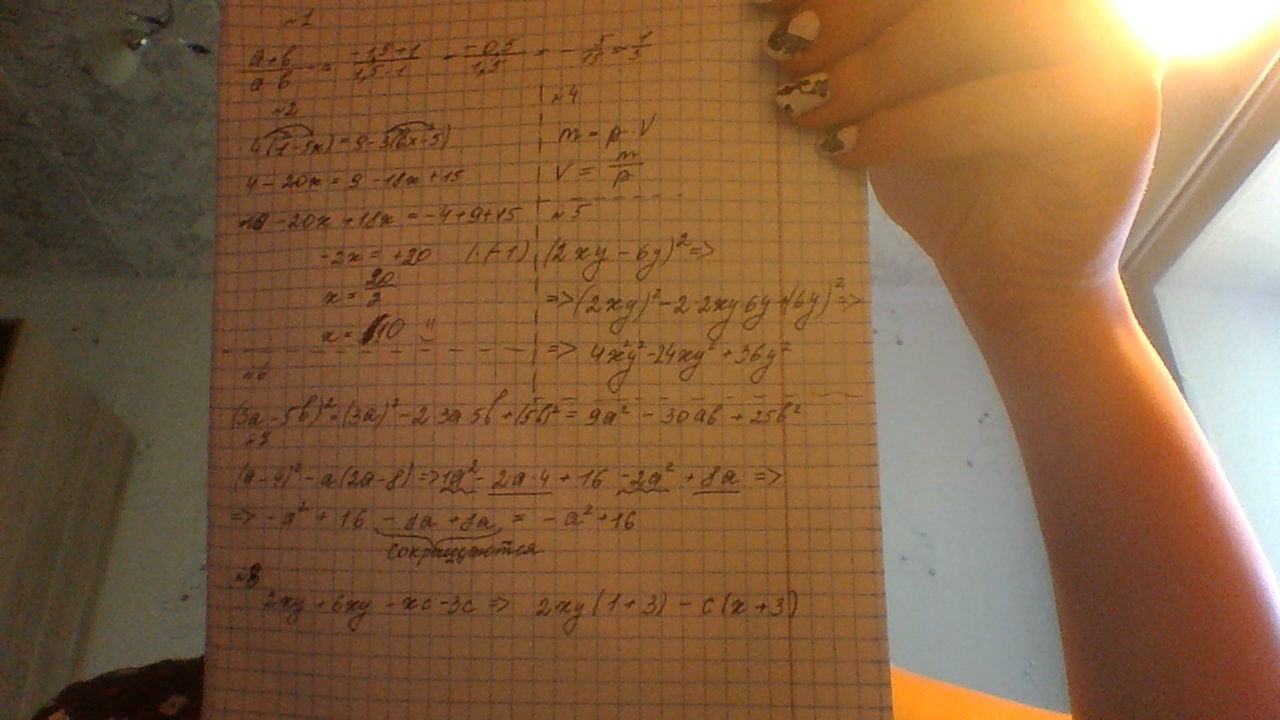 №1
a+b / a b = -1,5+1 / 1,5·1 = -0,5 / 1,5 = - 5/15 = 1/3
№2
4(1-5x)=9-3(6x-5)
4-20x=9-18x+15
-20x+18x=-4+9+15
-2x=+20 (·(-1)
x=20/2
x=10
№4
m=p·V
V=m/p
№5
(2xy-6y)²=>
=>(2xy)²-2·2xy6y+(6y)²=>
=> 4x²y²-24xy²+36y²
№6
(3a-5b)²=(3a)²-2·3a5b+(5b)²=9a²-30ab+25b²
№7
(a-4)²-a(2a-8)=>1a²-2a·4+16-2a²+8a=>
=>-a²+16-8a+8a=-a²+16
сокращаются
№8
2xy+6xy-xc-3c=> 2xy(1+3)-c(x+3)